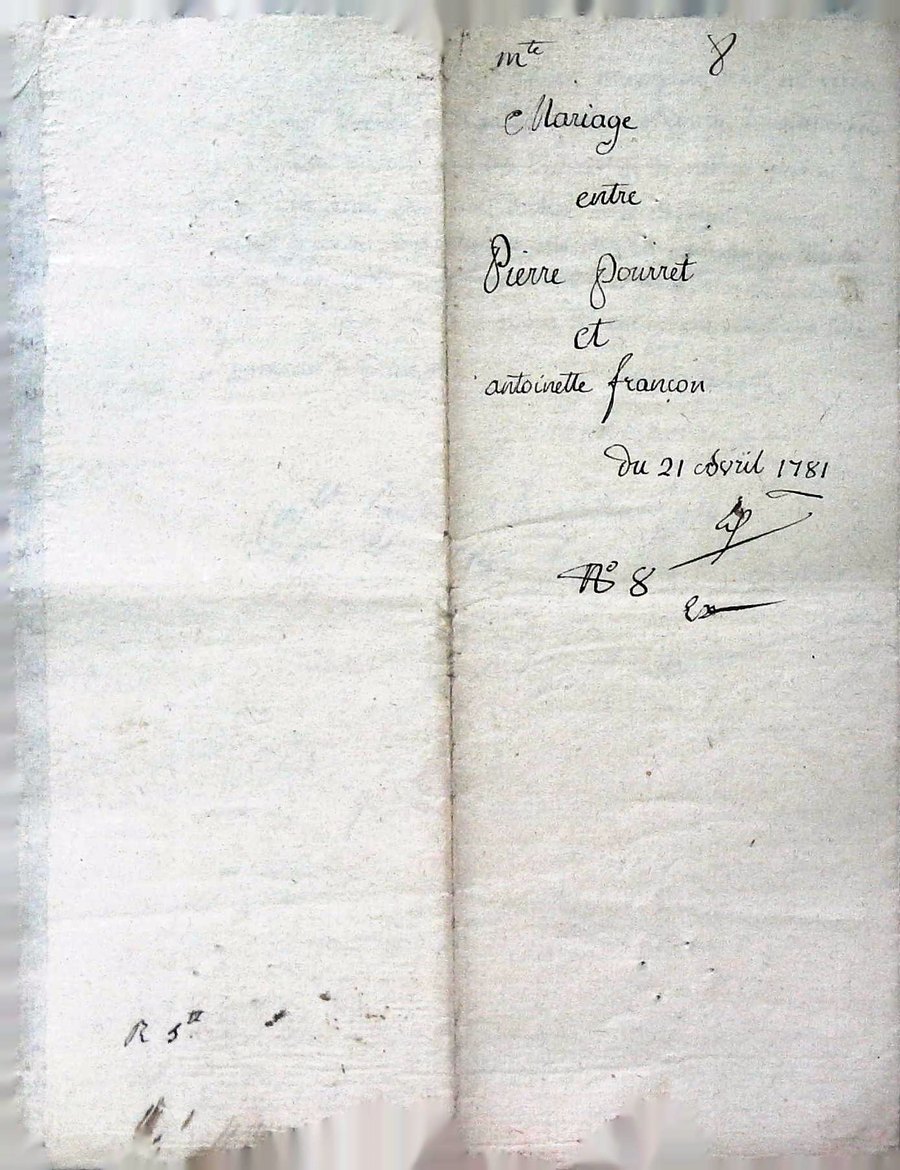 mte 8
Mariage
entre
Pierre pourret
et
antoinette françon
du 21 avril 1781
No 8
R 5tt